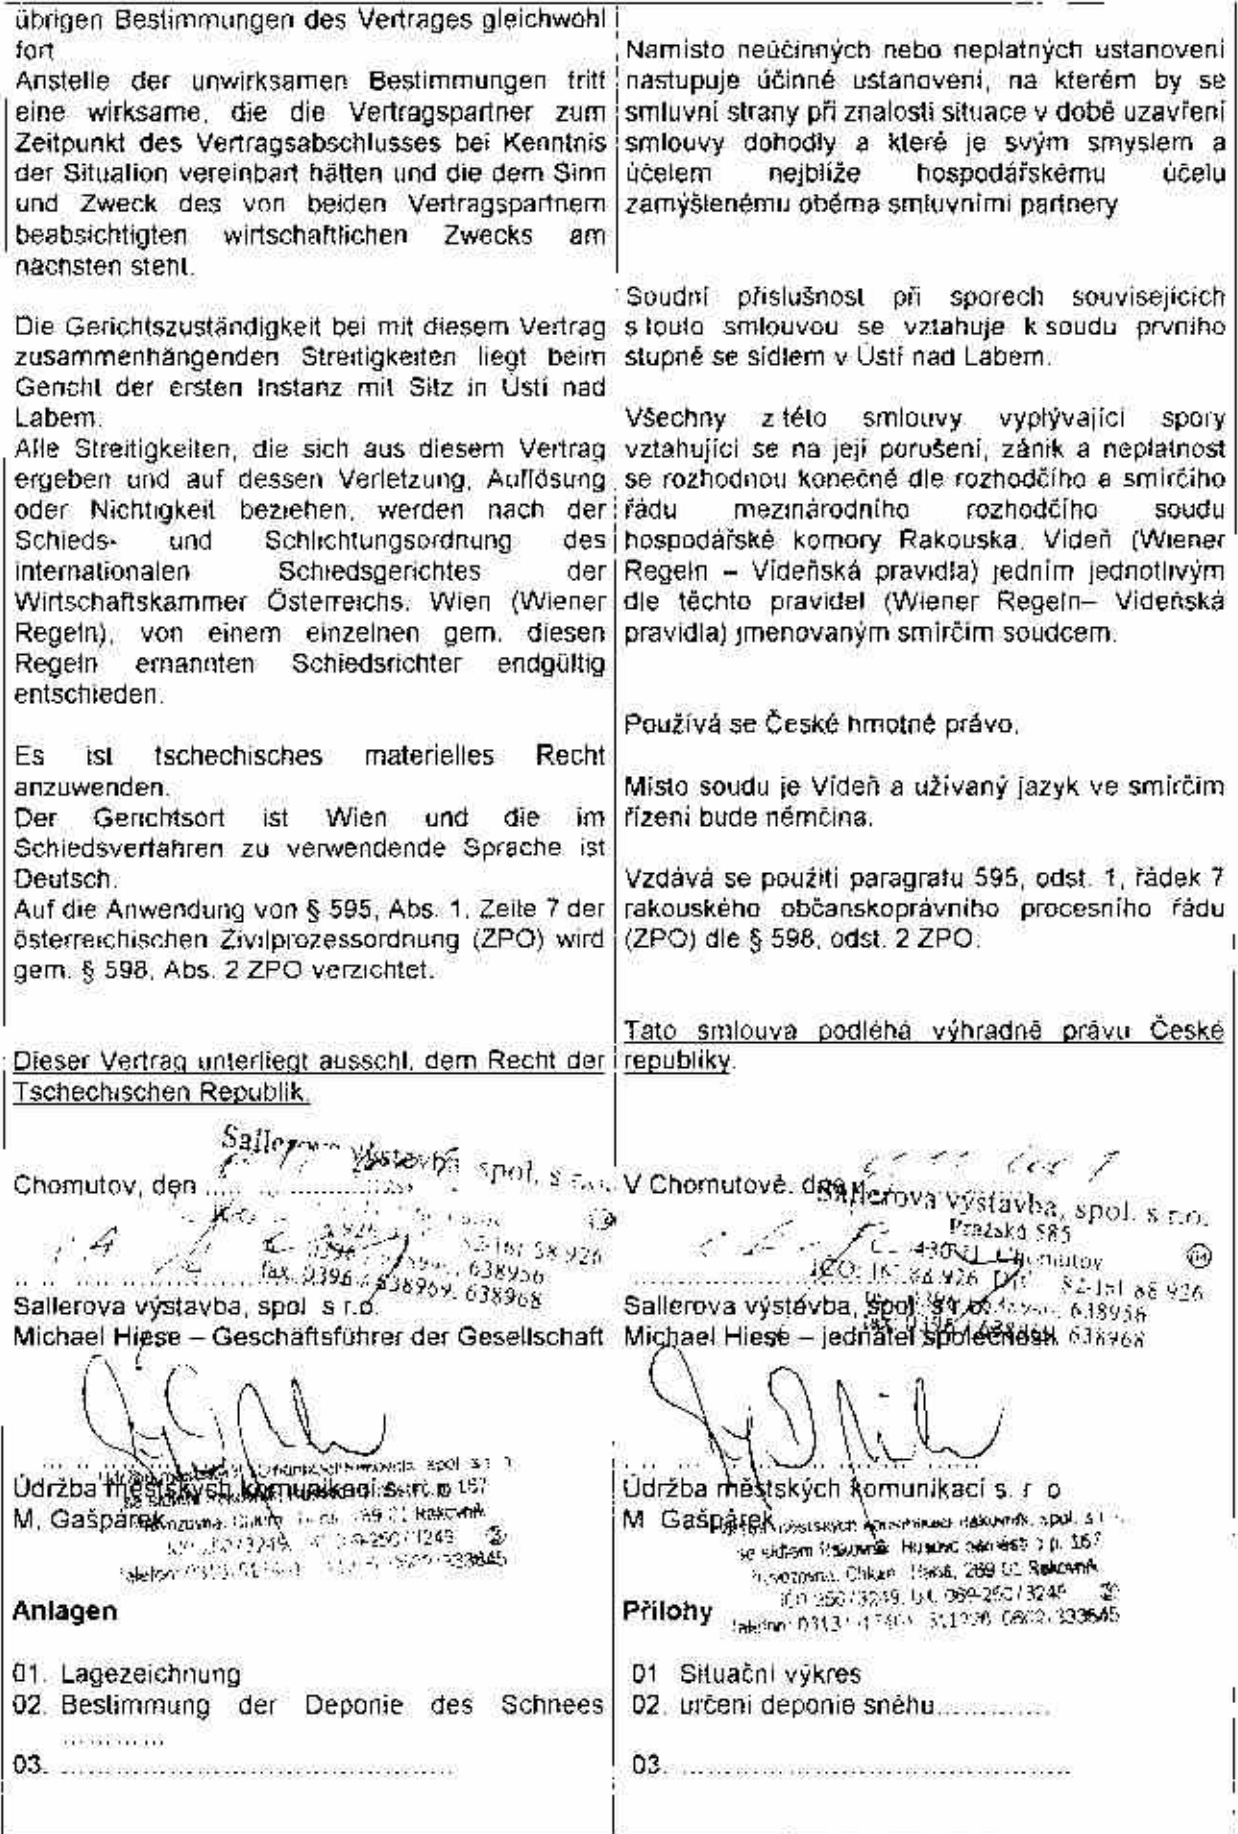 übrigen Bestimmungen des Vertrages gleichwohl
fort
Anstelle der unwirksamen Bestimmungen tritt
eine wirksame, die die Vertragspartner zum
Zeitpunkt des Vertragsabschlusses bei Kenntnis
der Situation vereinbart hätten und die dem Sinn
und Zweck des von beiden Vertragspartnern
beabsichtigten wirtschaftlichen Zwecks am
nächsten steht.
Die Gerichtszuständigkeit bei mit diesem Vertrag
zusammenhängenden Streitigkeiten liegt beim
Gericht der ersten Instanz mit Sitz in Ústí nad
Labem.
Alle Streitigkeiten, die sich aus diesem Vertrag
ergeben und auf dessen Verletzung, Auflösung
oder Nichtigkeit beziehen, werden nach der
Schieds- und Schlichtungsordnung des
internationalen Schiedsgerichtes der
Wirtschaftskammer Österreichs, Wien (Wiener
Regeln), von einem einzelnen gem. diesen
Regeln ernannten Schiedsrichter endgültig
entschieden.
Es ist tschechisches materielles Recht
anzuwenden.
Der Gerichtsort ist Wien und die im
Schiedsverfahren zu verwendende Sprache ist
Deutsch.
Auf die Anwendung von § 595, Abs. 1, Zeile 7 der
österreichischen Zivilprozessordnung (ZPO) wird
gem. § 598, Abs. 2 ZPO verzichtet.
Dieser Vertrag unterliegt ausschl. dem Recht der
Tschechischen Republik.
Chomutov, den
Sallerova výstavba, spol. s r.o.
Sallerova výstavba, spol s r.o.
Michael Hiese – Geschäftsführer der Gesellschaft
Údržba městských komunikací s. r. o
M. Gašpárek
Anlagen
01. Lagezeichnung
02. Bestimmung der Deponie des Schnees
............
03. ........................................
Namísto neúčinných nebo neplatných ustanovení
nastupuje účinné ustanovení, na kterém by se
smluvní strany při znalosti situace v době uzavření
smlouvy dohodly a které je svým smyslem a
účelem nejblíže hospodářskému účelu
zamýšlenému oběma smluvními partnery
Soudní příslušnost při sporech souvisejících
s touto smlouvou se vztahuje k soudu prvního
stupně se sídlem v Ústí nad Labem.
Všechny z této smlouvy vyplývající spory
vztahující se na její porušení, zánik a neplatnost
se rozhodnou konečně dle rozhodčího a smírčího
řádu mezinárodního rozhodčího soudu
hospodářské komory Rakouska, Vídeň (Wiener
Regeln – Vídeňská pravidla) jedním jednotlivým
dle těchto pravidel (Wiener Regeln– Vídeňská
pravidla) jmenovaným smírčím soudcem.
Používá se České hmotné právo.
Místo soudu je Vídeň a užívaný jazyk ve smírčím
řízení bude němčina.
Vzdává se použití paragrafu 595, odst. 1, řádek 7
rakouského občanskoprávního procesního řádu
(ZPO) dle § 598, odst. 2 ZPO.
Tato smlouva podléhá výhradně právu České
republiky.
V Chomutově, dne
Sallerova výstavba, spol. s r.o.
Pražská 585
Chomutov
Sallerova výstavba, spol. s r.o.
Michael Hiese – jednatel společnosti
Údržba městských komunikací s. r o
M Gašpárek
Přílohy
01 Situační výkres
02. určení deponie sněhu.............
03. ........................................